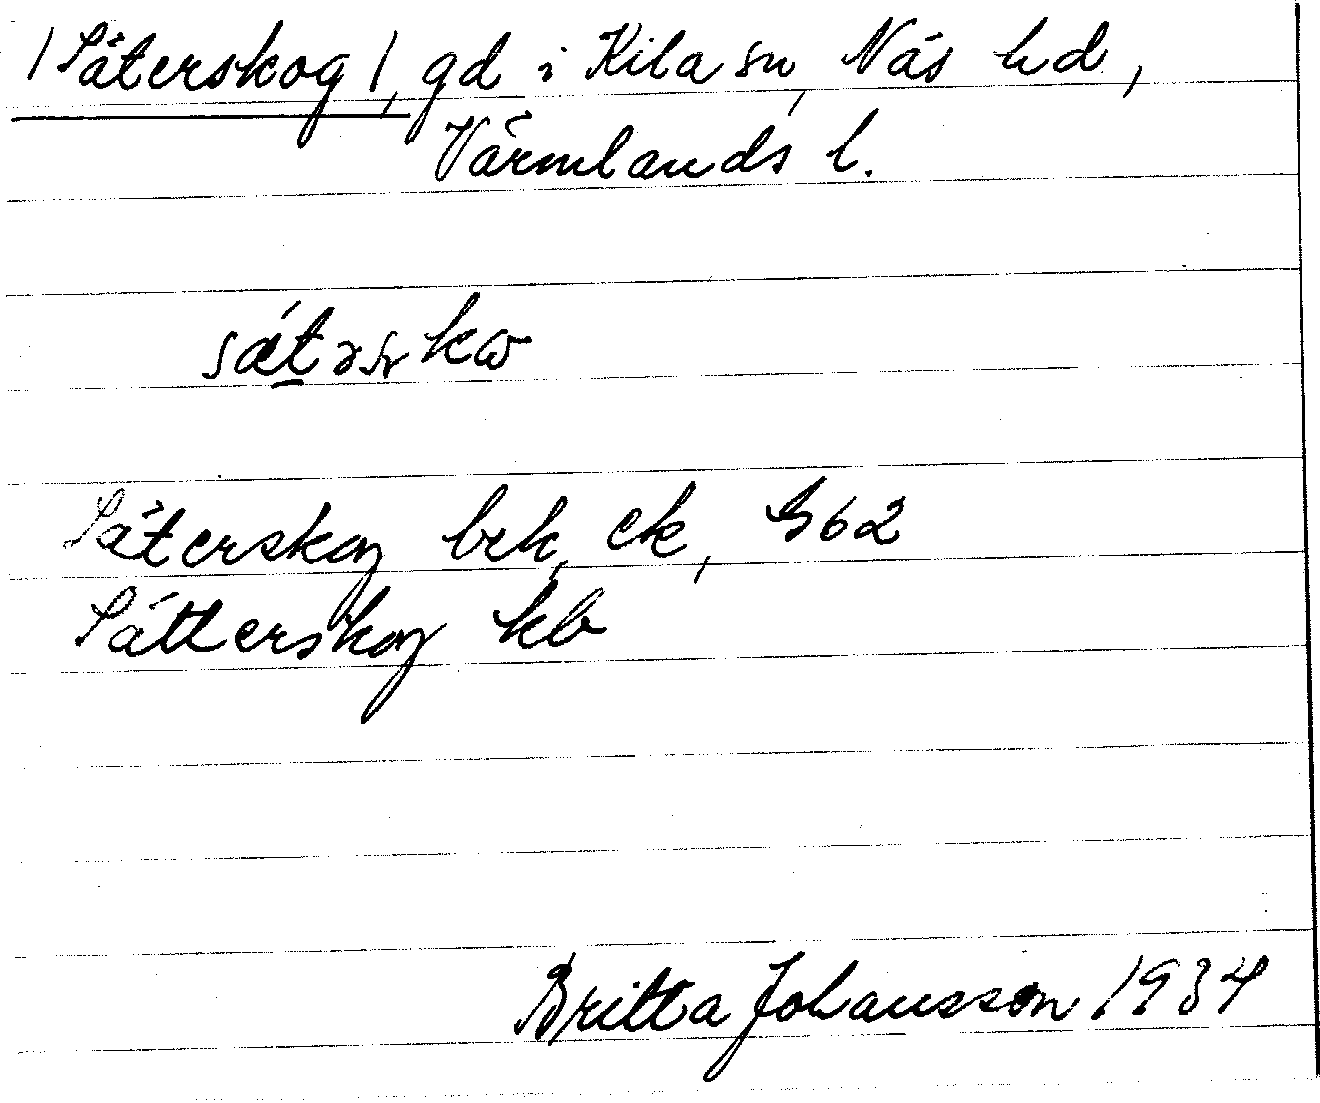 /Säterskog/, gd i Kila sn, Näs hd,
Värmlands l.
Säterskog brk, ek, G62
Sätterskog kb
Britta Johansson 1934